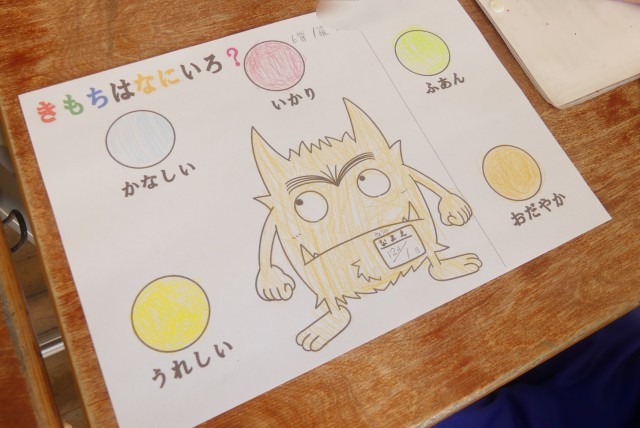 きもちはなにいろ?
いかり
ふあん
かなしい
おだやか
うれしい
なまえ